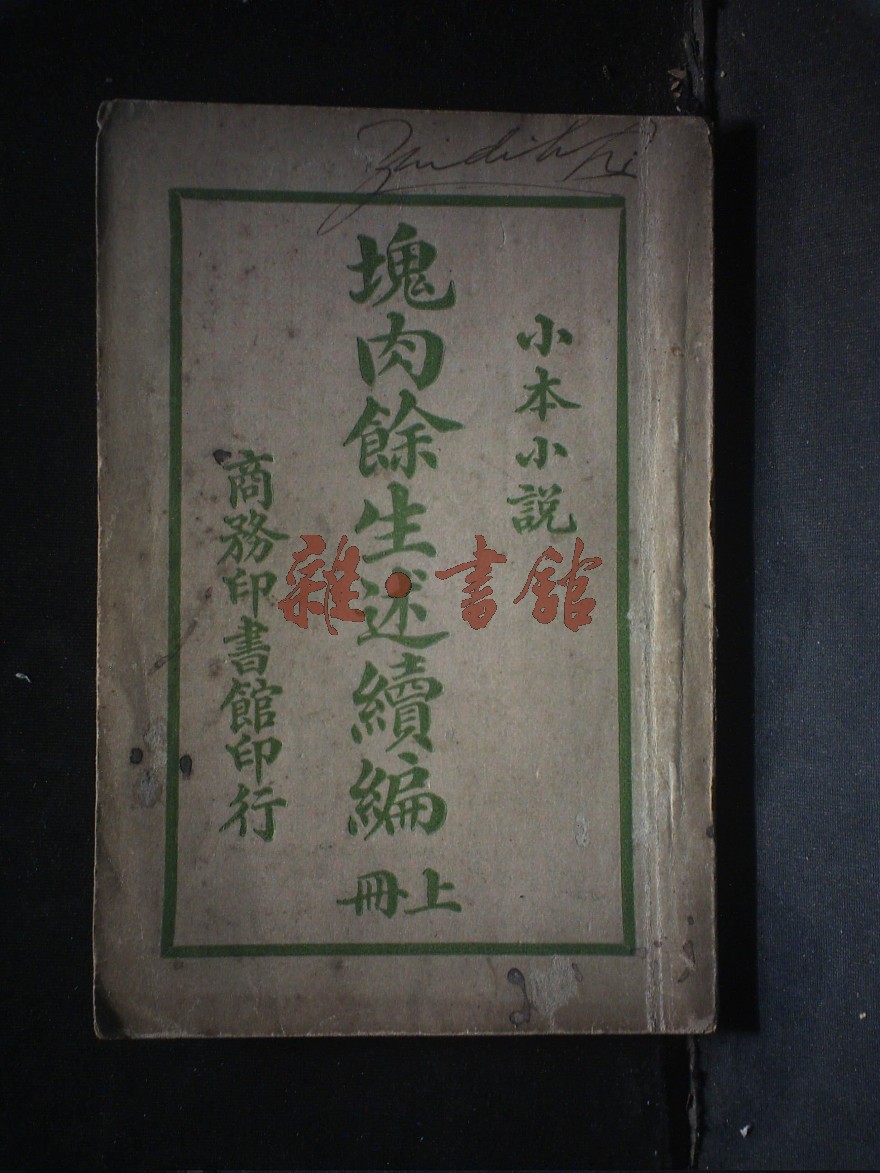 小本小説
塊肉餘生述續編
上冊
商務印書館印行
雜·書館